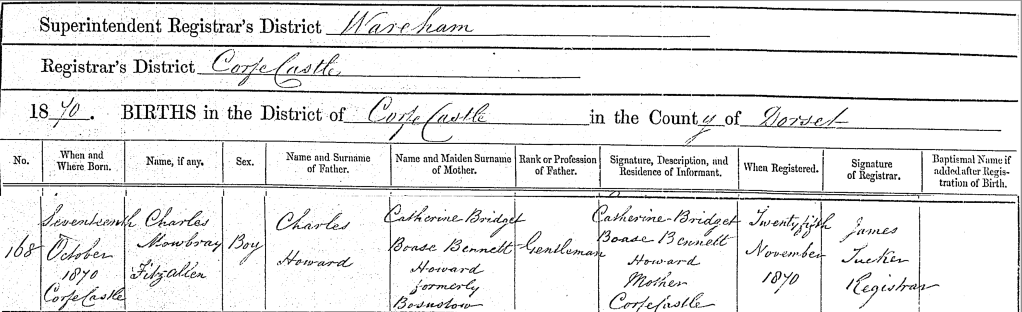 Superintendent Registrar's District Wareham
Registrar's District Corfe Castle
1870. BIRTHS in the District of Corfe Castle in the County of Dorset
No.
When and Where Born.
Name, if any.
Sex.
Name and Surname of Father.
Name and Maiden Surname of Mother.
Rank or Profession of Father.
Signature, Description, and Residence of Informant.
When Registered.
Signature of Registrar.
Baptismal Name if added after Registration of Birth.
168
Seventeenth
October
1870
Corfe Castle
Charles
Mowbray
Fitzallen
Boy
Charles
Howard
Catherine Bridget
Boase Bennett
Howard
formerly
Gentleman
Catherine Bridget
Boase Bennett
Howard
Mother
Corfe Castle
Twenty fifth
November
1870
James
Tucker
Registrar